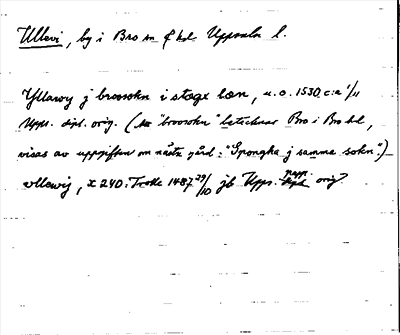 Ullevi, by i Bro sn & hd Uppsala l.
Yllawij j broosokn i stægx læn, u.o. 1530 c:a 1/11
Upps. dipl. orig. (Att "broosokn" betecknar Bro i Bro hd,
visas av uppgiften om nästa gård: "Sponghæ j samma sokn".)
vllewij, x 240. Trolle 1487 29/10 jb Upps. papp. dipl. orig.